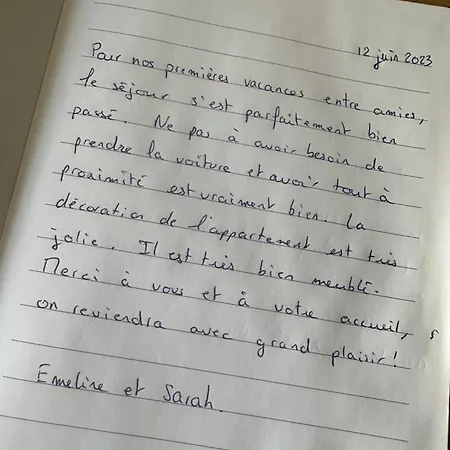 12 juin 2023
Pour nos premières vacances entre amies,
le séjour s'est parfaitement bien
passé. Ne pas à avoir besoin de
prendre la voiture et avoir tout à
proximité est vraiment bien. La
décoration de l'appartement est très
jolie. Il est très bien meublé.
Merci à vous et à votre accueil,
on reviendra avec grand plaisir !
Emeline et Sarah.